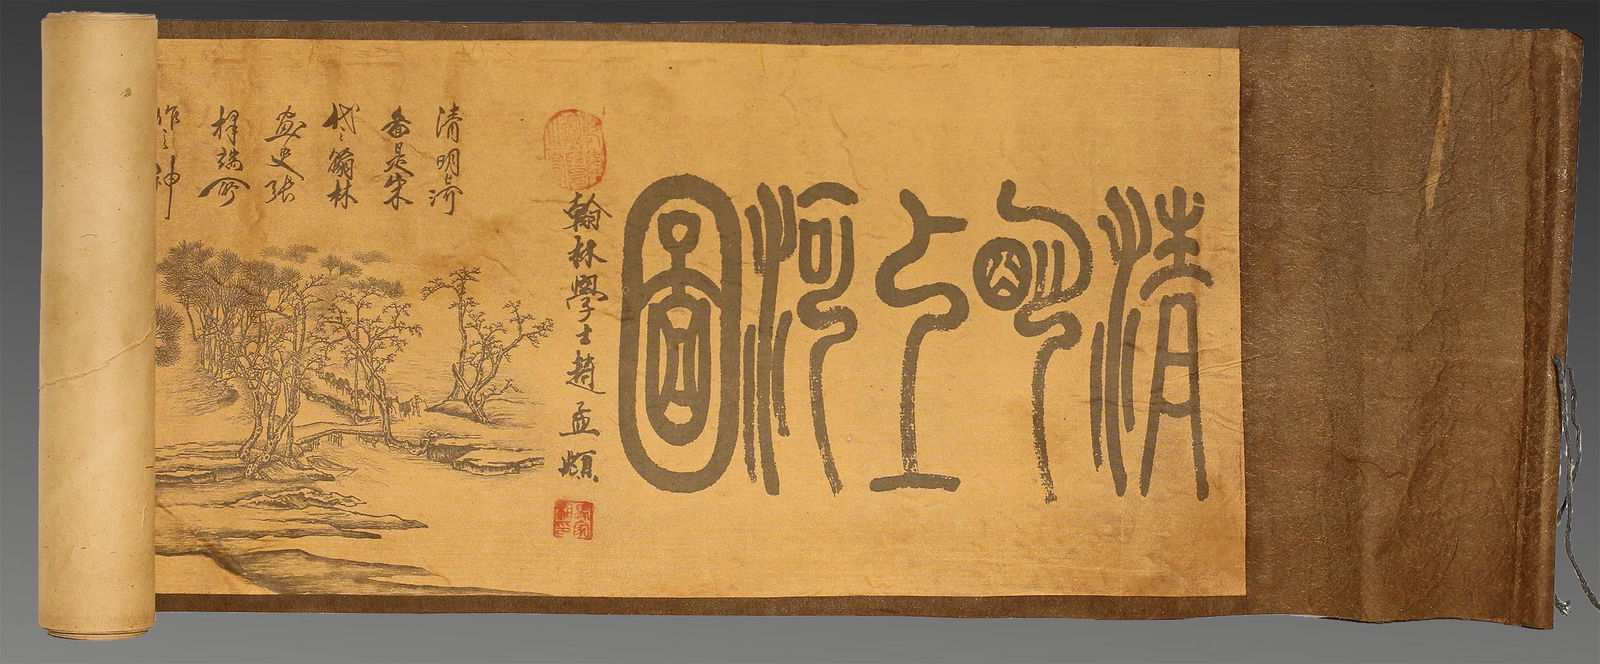 清明上河圖
翰林學士趙孟頫
清明河
卷是朱
代翰林
畫史張
擇端所
作之神